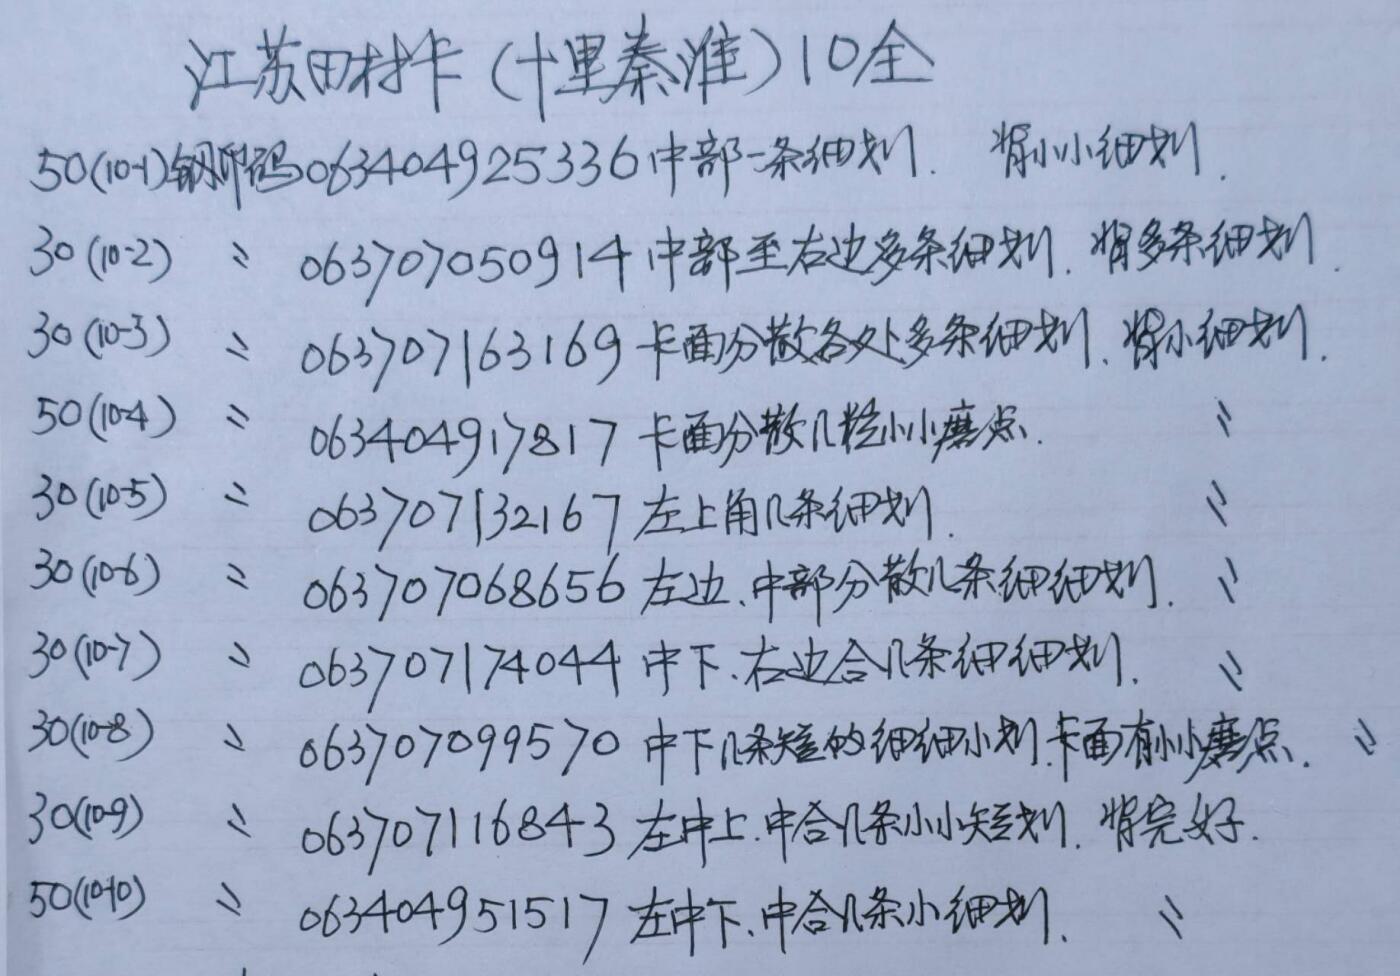 江苏田村卡(十里秦淮)10全
50(10-1)钢印码063404925336中部一条细划. 背小小细划.
30(10-2) 〃 063707050914中部至右边多条细划.背多条细划.
30(10-3) 〃 063707163169卡面分散各处多条细划.背小细划.
50(10-4) 〃 063404917817卡面分散几粒小小磨点. 〃
30(10-5) 〃 063707132167左上角几条细划. 〃
30(10-6) 〃 063707068656左边.中部分散几条细细划. 〃
30(10-7) 〃 063707174044中下.右边合几条细细划. 〃
30(10-8) 〃 063707099570中下几条短的细细小划.卡面有小小磨点. 〃
30(10-9) 〃 063707116843左中上.中合几条小小短划.背完好.
50(10-10) 〃 063404951517左中下.中合几条小细划. 〃